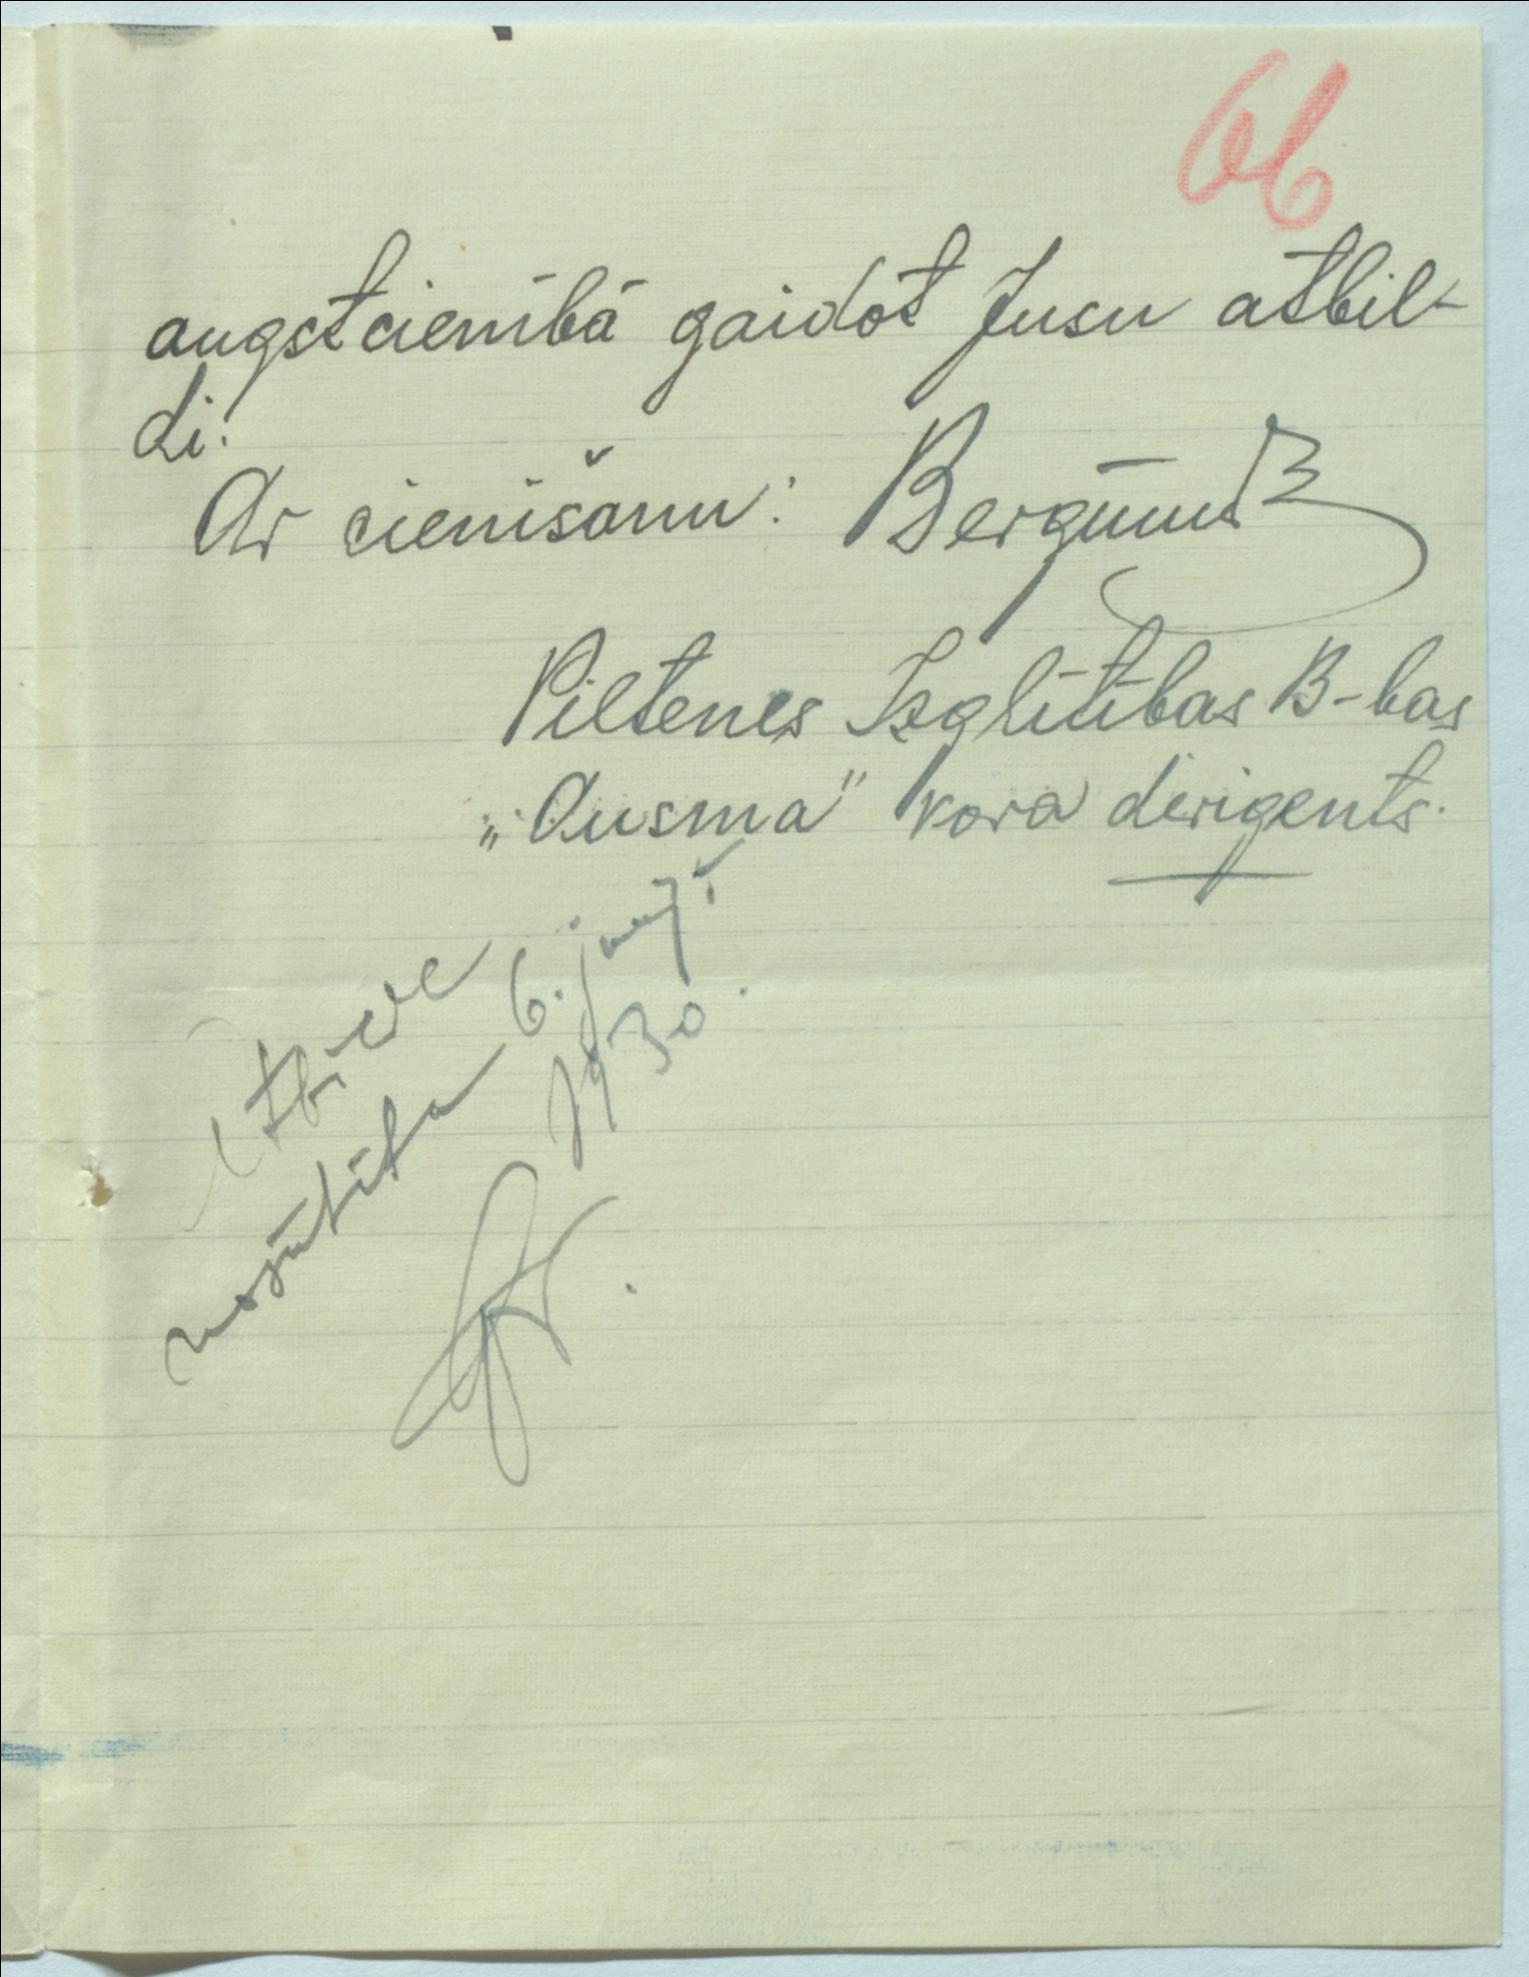 66
augstcienībā gaidot Jusu atbil-
di.
Ar cienišanu: Bergūns
Piltenes Izglītības B-bas
„Ausma" kora dirigents.
Atbilde
nosūtīta 6. junijā
1930.